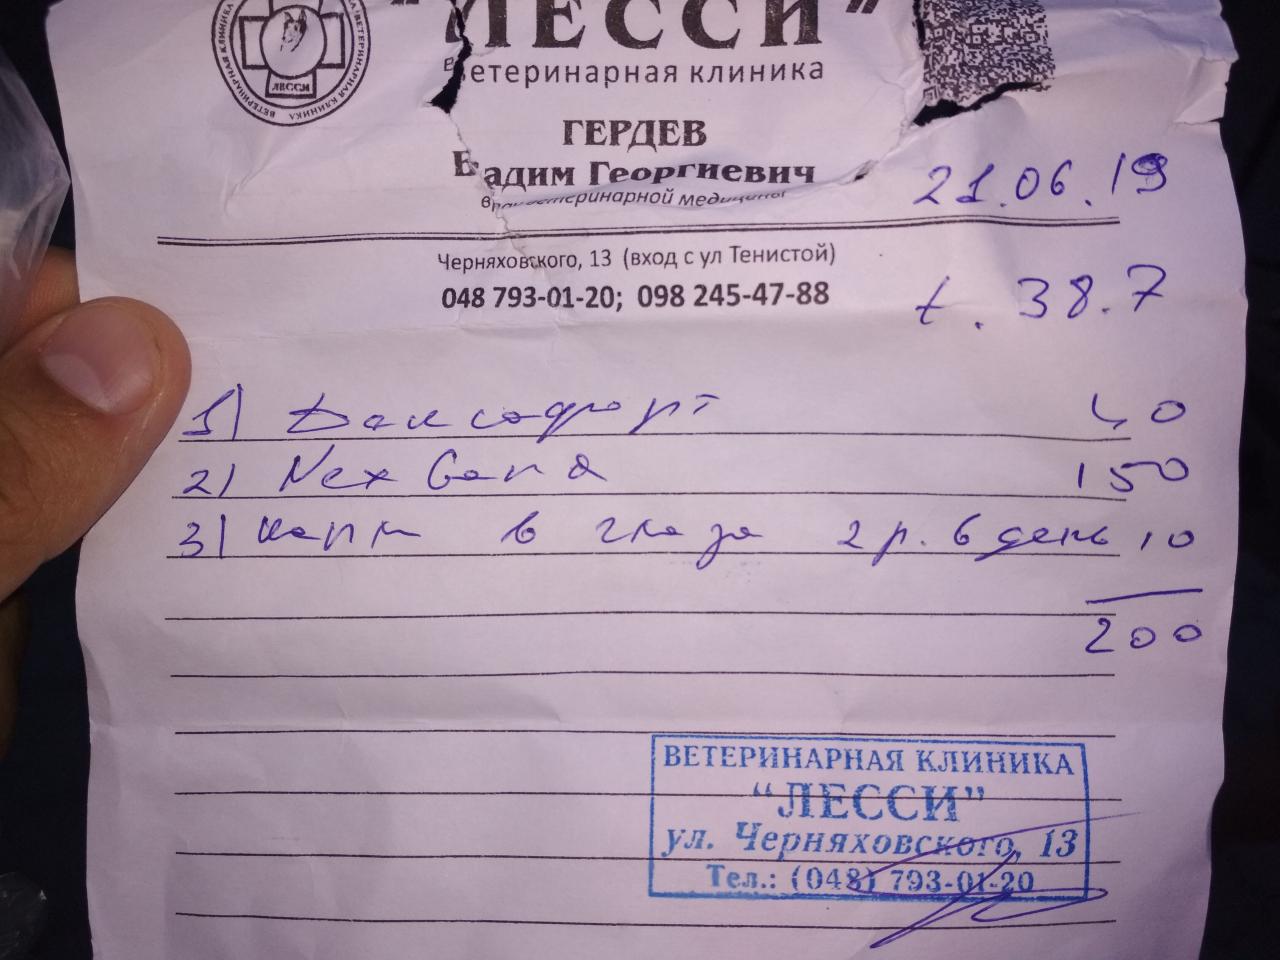 "ЛЕССИ"
ветеринарная клиника
ВЕТЕРИНАРНАЯ КЛИНИКА
ЛЕССИ
ГЕРДЕВ
Вадим Георгиевич
ветеринарной медицины
21.06.19
Черняховского, 13 (вход с ул Тенистой)
048 793-01-20; 098 245-47-88
t. 38.7
1) 40
2) NexGard 150
3) капли в глаза 2 р. в день 10
200
ВЕТЕРИНАРНАЯ КЛИНИКА
"ЛЕССИ"
ул. Черняховского, 13
Тел.: (048) 793-01-20